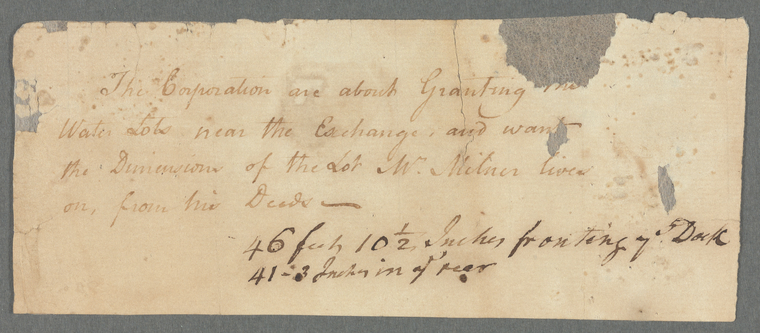 The Corporation are about Granting the
Water Lots near the Exchange, and want
the Dimensions of the Lot Mr. Milner lives
on, from his Deeds —
46 feet, 10 1/2 Inches fronting ye Dock
41-3 Inches in ye rear